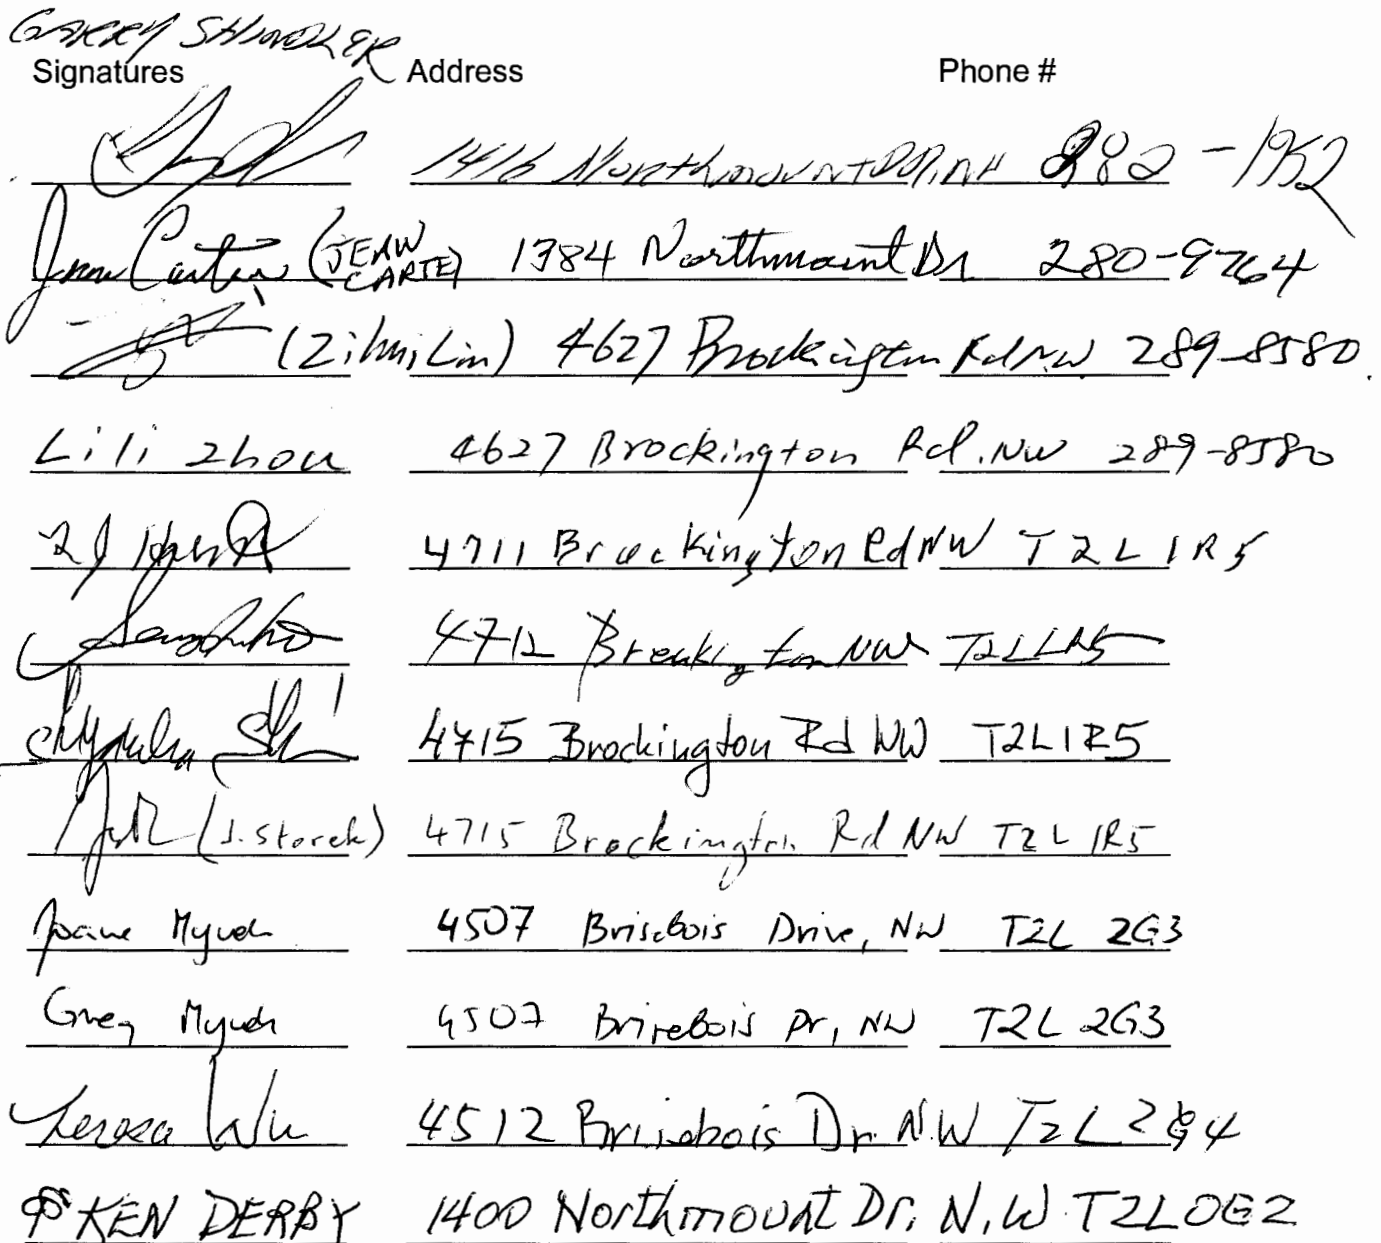 GARRY SHINDLER
Signatures Address Phone #
1416 Northmount DR. NW 282-1952
Jean Carter (JEAN CARTER) 1384 Northmount Dr 280-9764
(Zihui Lin) 4627 Brockington Rd NW 289-8580
Lili Zhou 4627 Brockington Rd. NW 289-8580
4711 Brockington Rd NW T2L 1R5
4712 Brockington NW T2L1R5
4715 Brockington Rd NW T2L1R5
(J. Storek) 4715 Brockington Rd NW T2L 1R5
4507 Brisebois Drive, NW T2L 2G3
Greg 4507 Brisebois Dr, NW T2L 2G3
Teresa Wu 4512 Brisebois Dr. N.W T2L 2G4
KEN DERBY 1400 Northmount Dr. N.W. T2L0E2